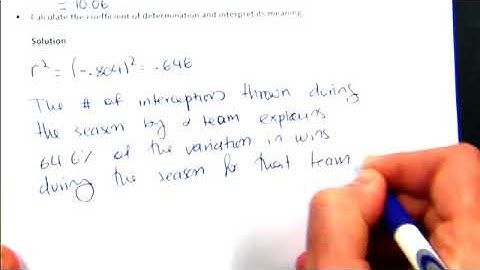 = 10.06
• Calculate the coefficient of determination and interpret its meaning.
Solution
r² = (-.804)² = .646
The # of interceptions thrown during
the season by a team explains
64.6% of the variation in wins
during the season for that team